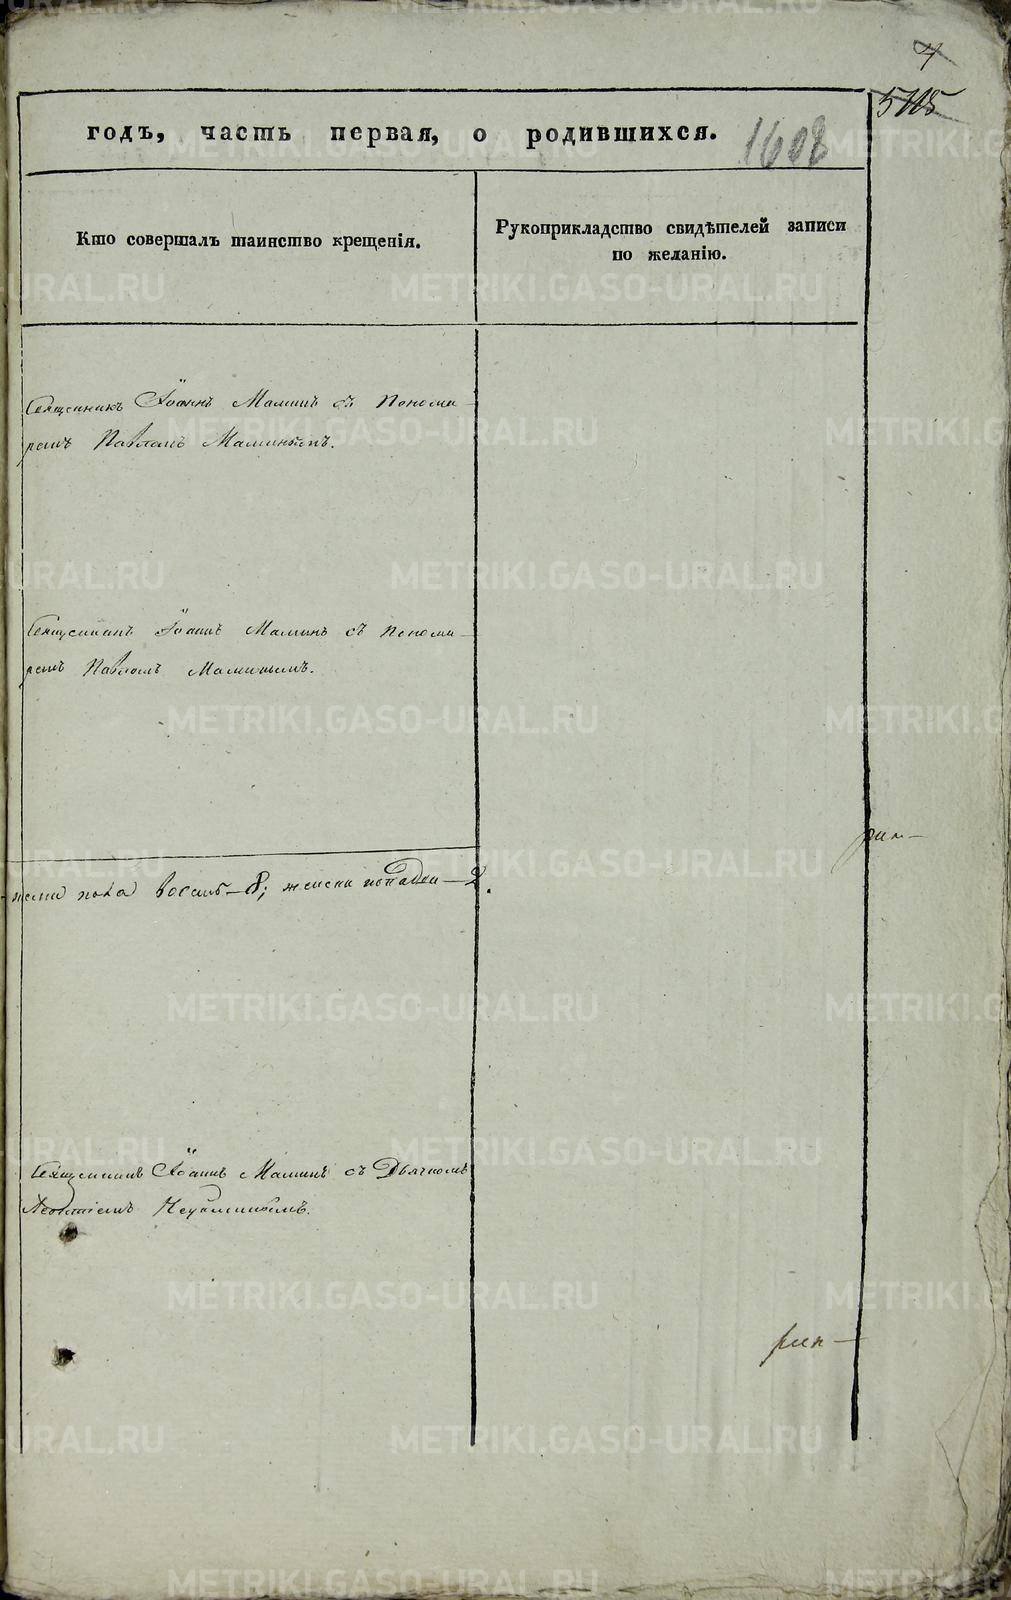 4
5115
годъ, часть первая, о родившихся.
1608
Кто совершалъ таинство крещенія.
Рукоприкладство свидѣтелей записи
по желанію.
Священникъ Іоаннъ Маминъ съ Понома-
ремъ Павломъ Маминымъ.
Священникъ Іоаннъ Маминъ съ Понома-
ремъ Павломъ Маминымъ.
пола восемь – 8; женска пола два – 2.
Священникъ Іоаннъ Маминъ съ Дьячкомъ
METRIKI.GASO-URAL.RU